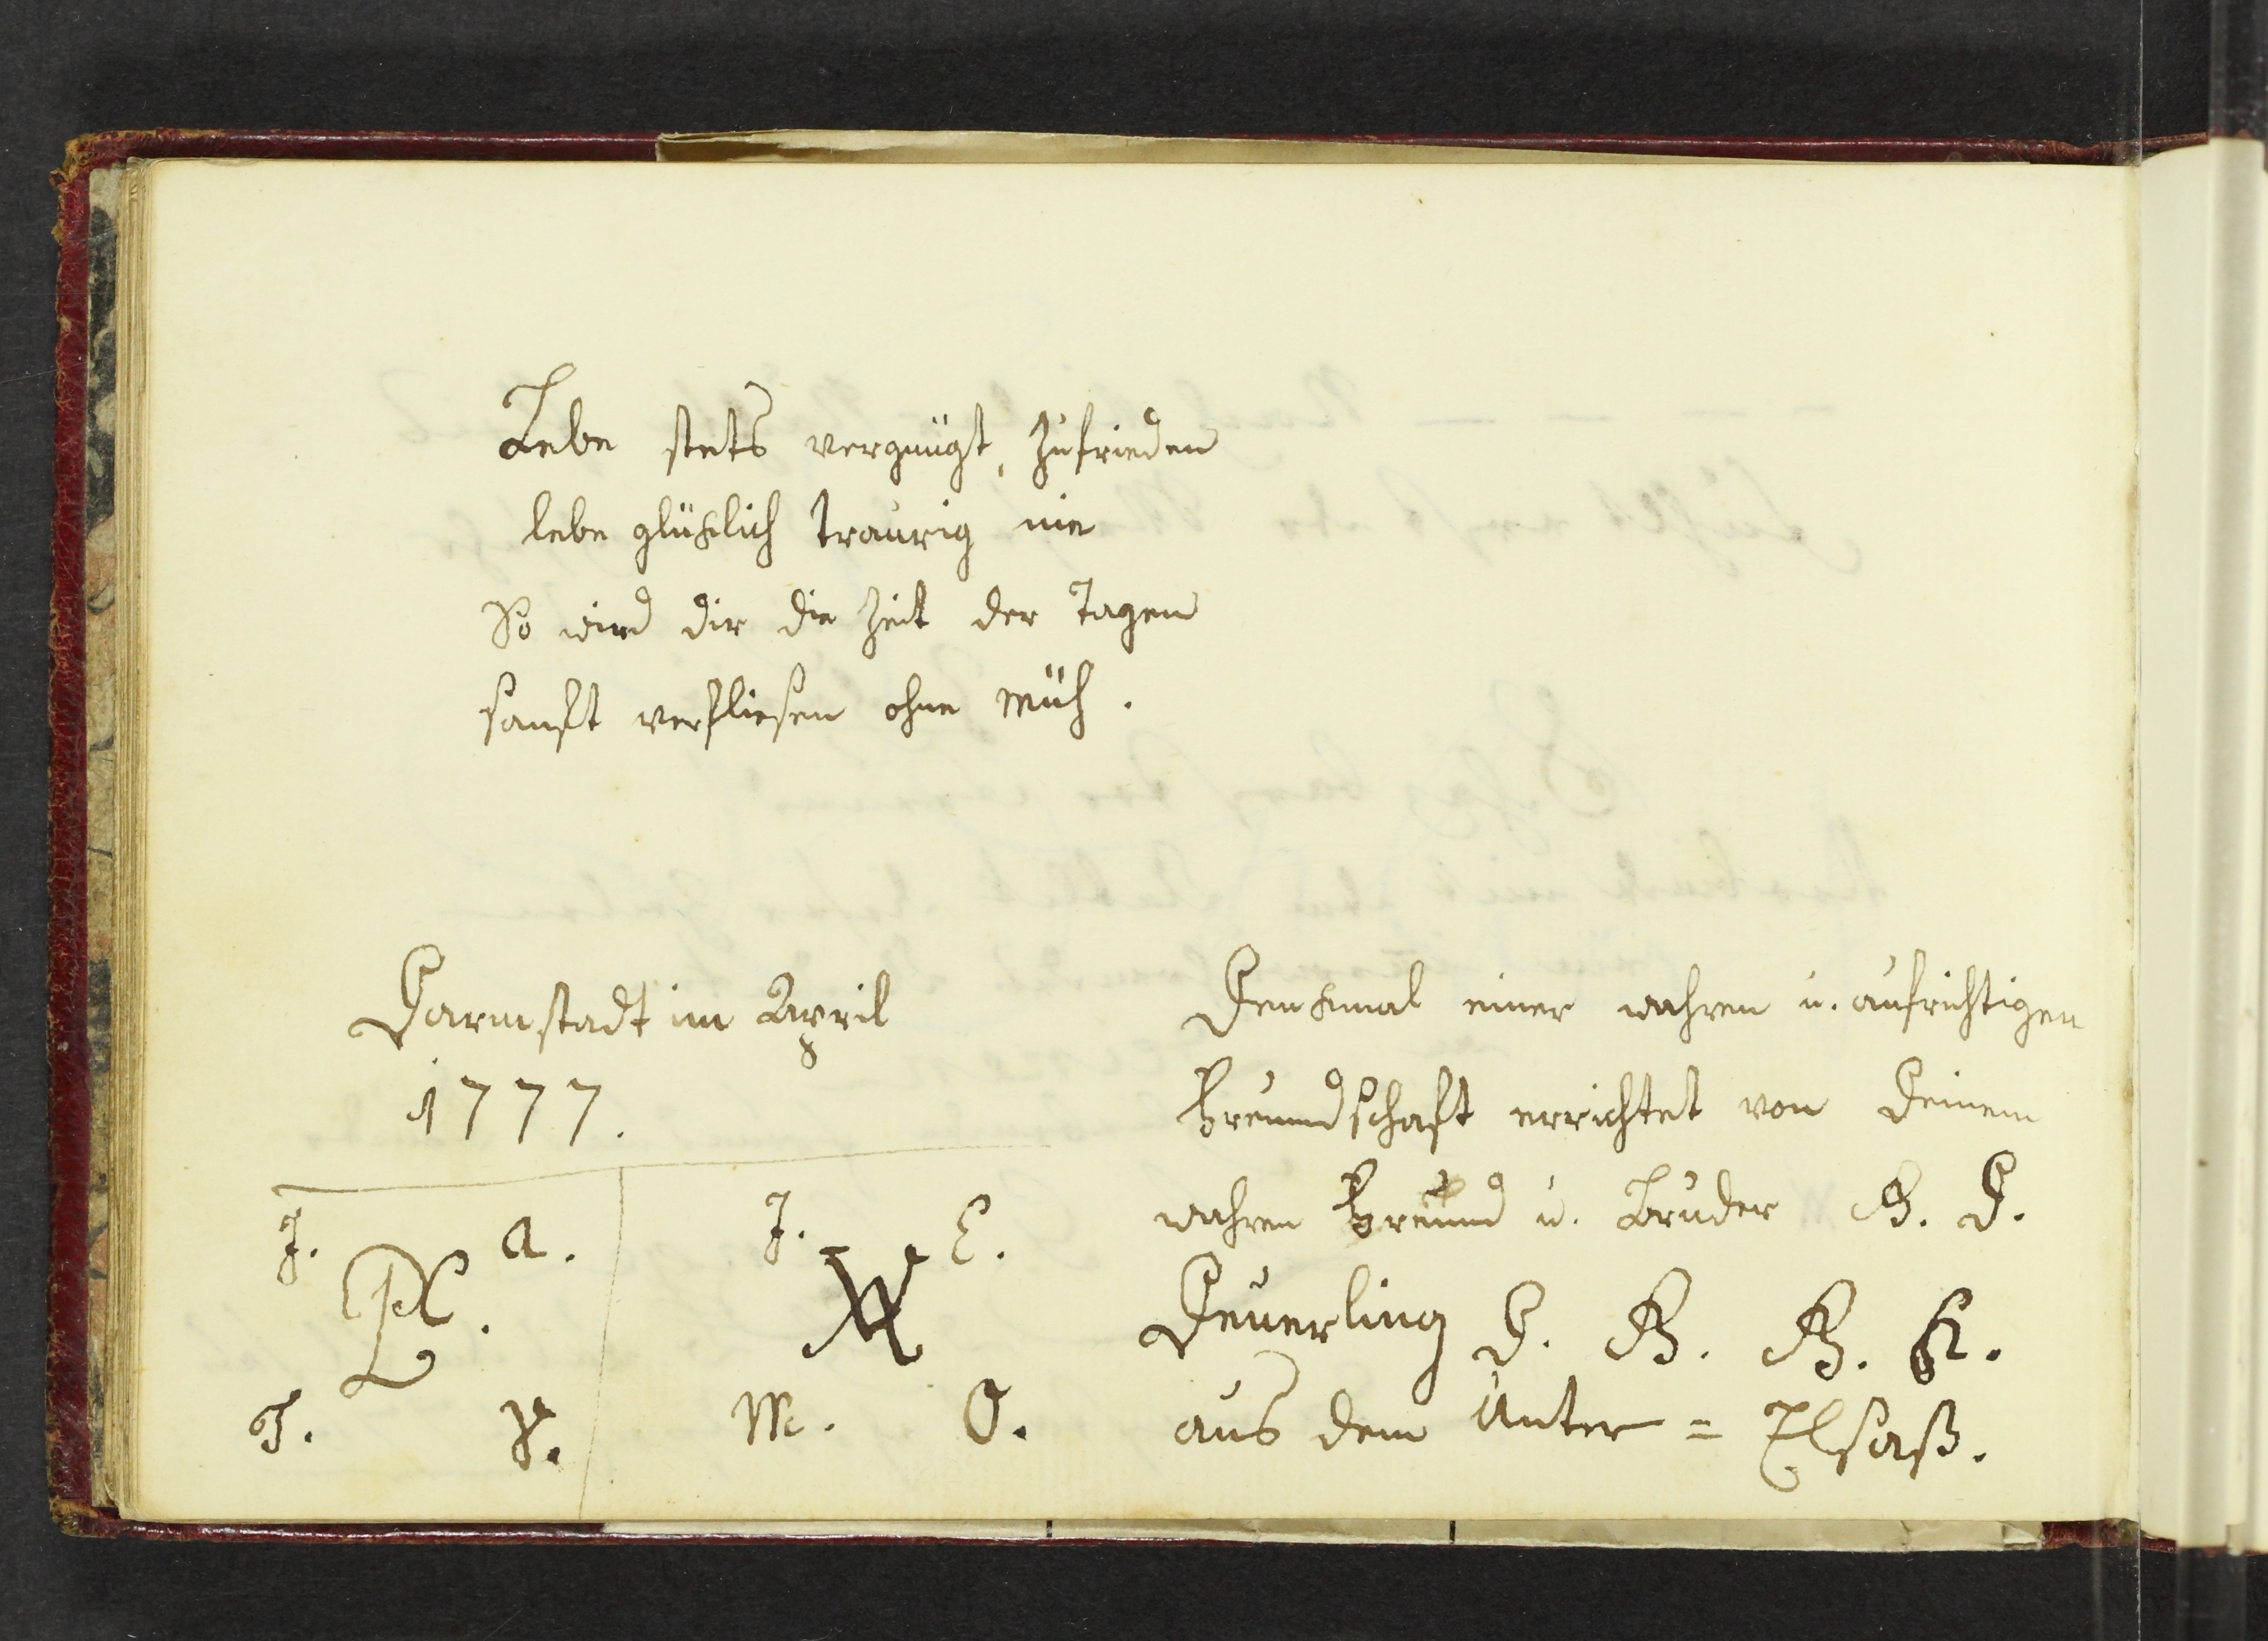 Lebe stets vergnügt, zufrieden
lebe glüklich traurig nie
So wird dir die Zeit der Tagen
sanft verfliesen ohne müh.
Darmstadt im April
1777.
J. A. J. E.
M. O.
Denkmal einer wahren u. aufrichtigen
Freundschaft errichtet von Deinem
wahren Freund u. Bruder G. D.
Deuerling D. G. G. K.
aus dem Unter = Elsaß.